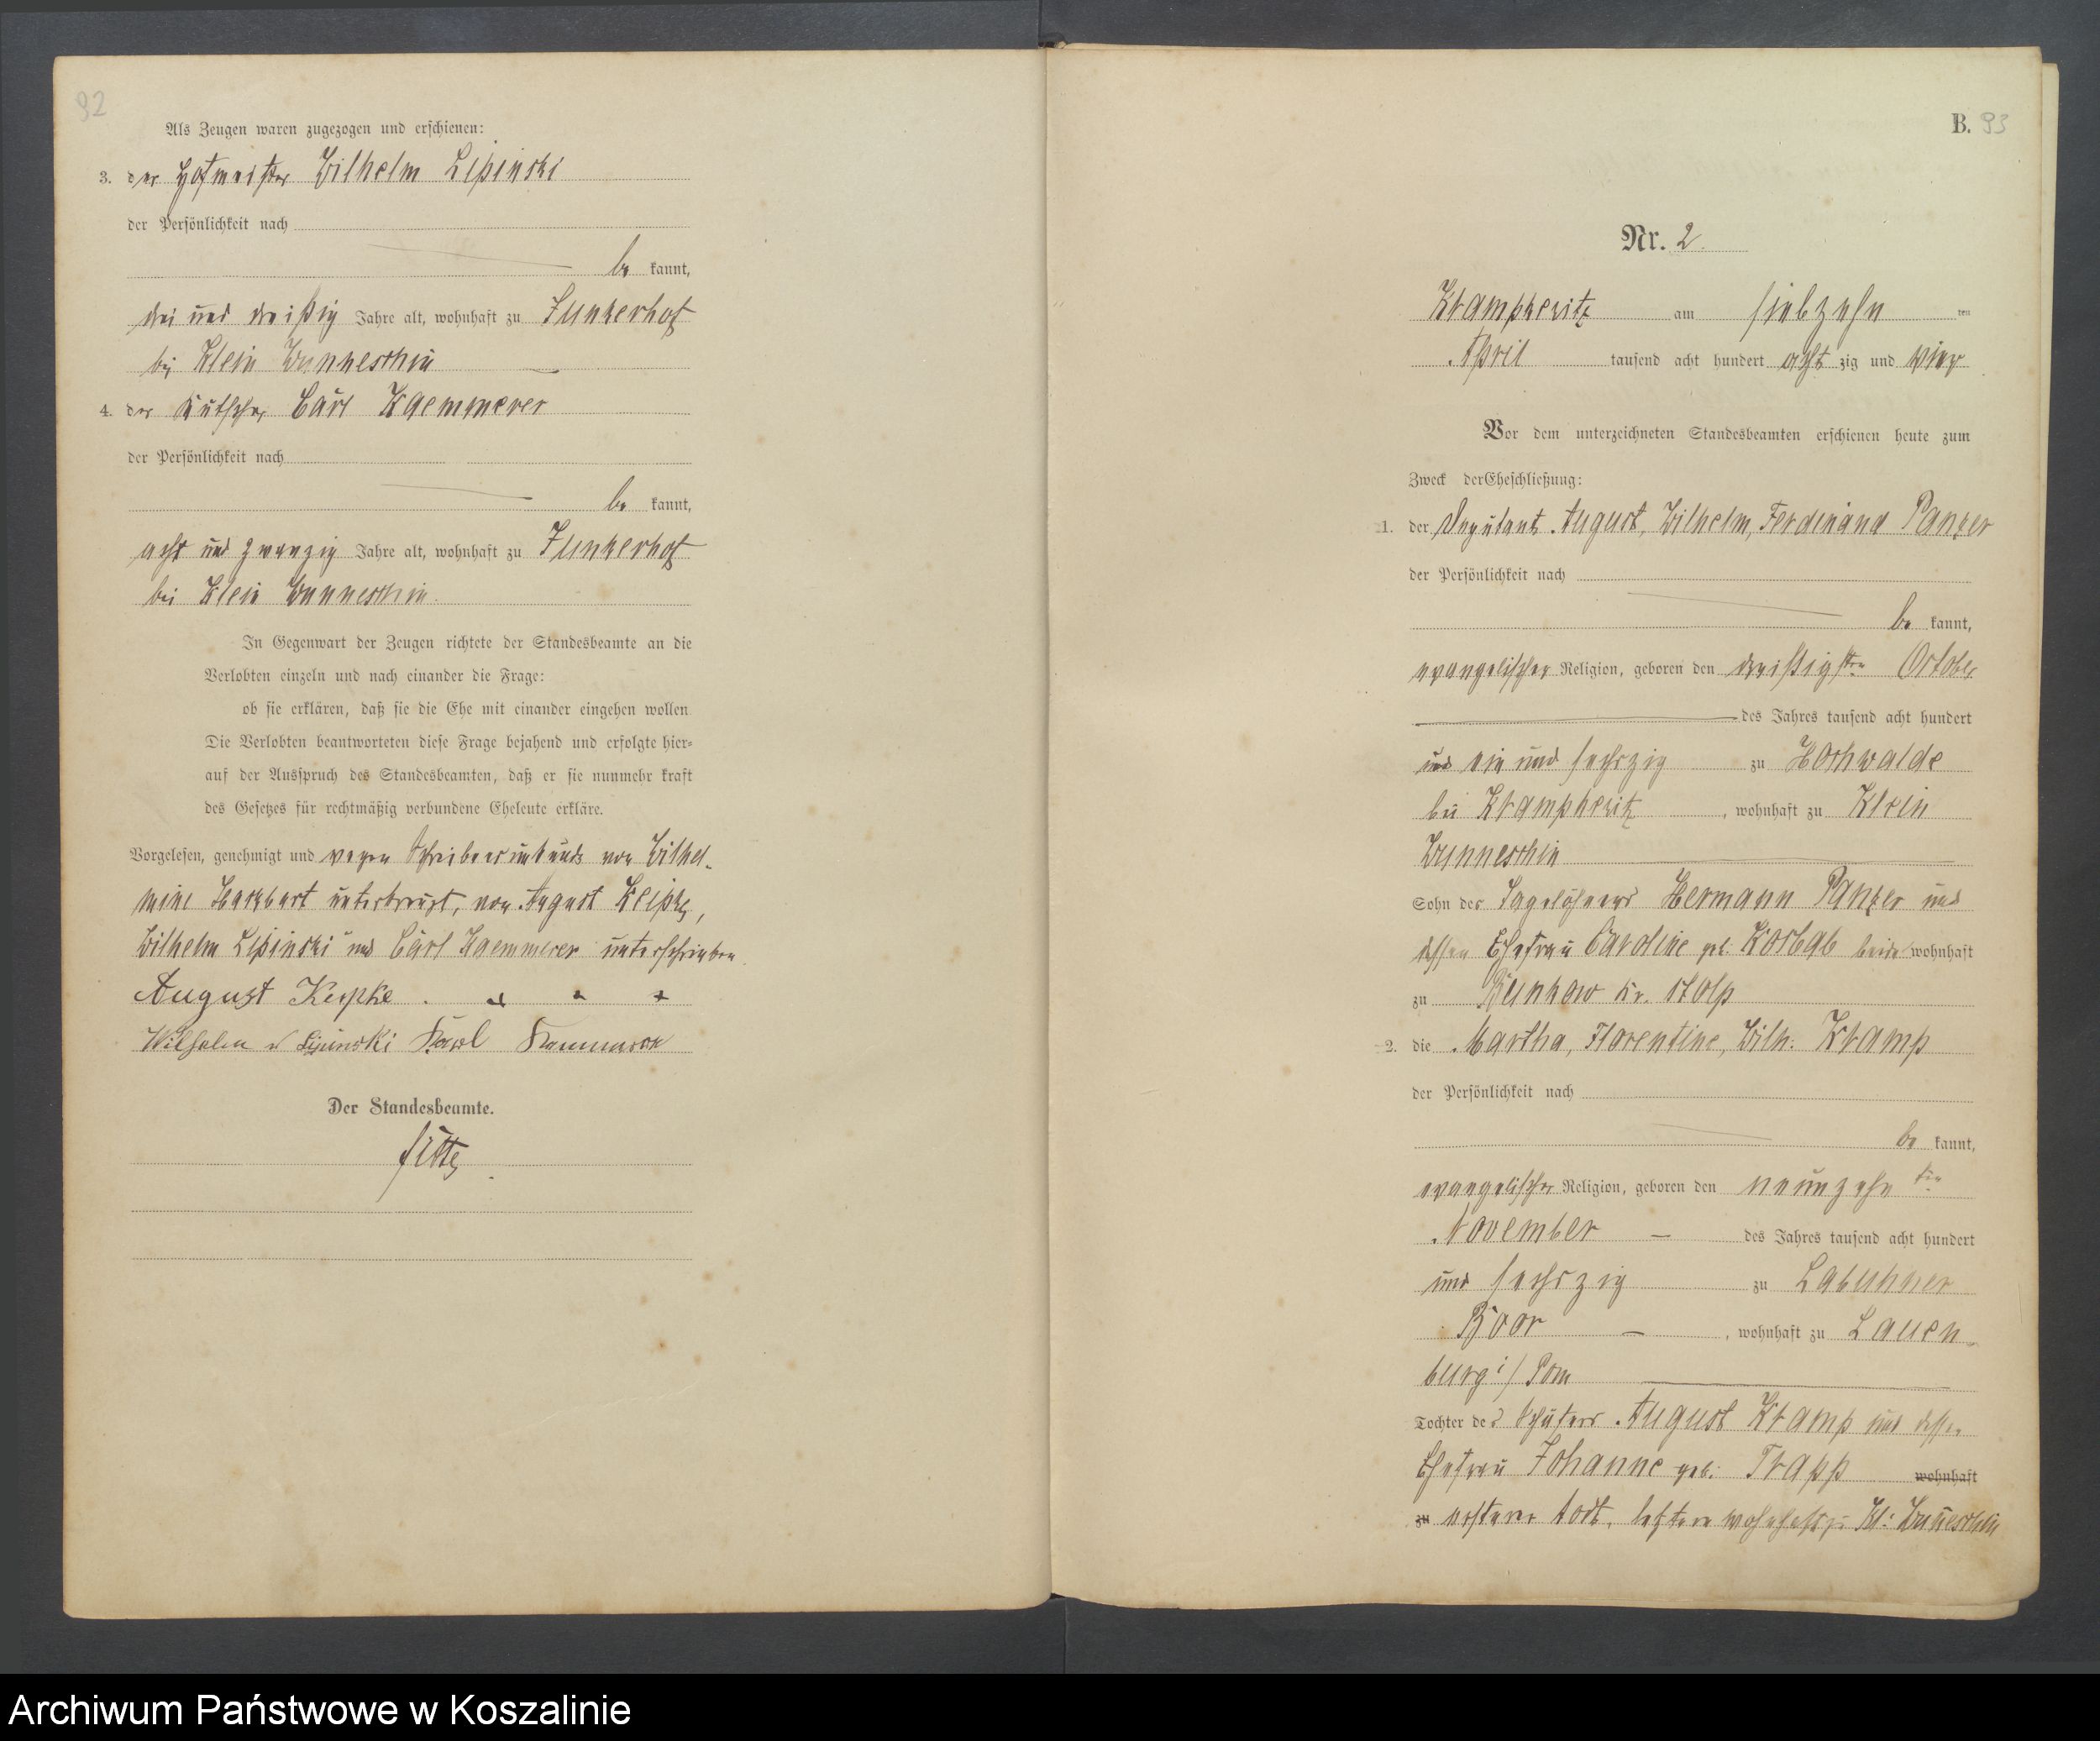 92
Als Zeugen waren zugezogen und erschienen:
3. der Hofmeister Wilhelm Lipinski
der Persönlichkeit nach
be kannt,
drei und dreißig Jahre alt, wohnhaft zu Junkerhof
bei Klein Wunneschin
4. der Kutscher Carl Kaemmerer
der Persönlichkeit nach
be kannt,
acht und zwanzig Jahre alt, wohnhaft zu Junkerhof
bei Klein Wunneschin.
In Gegenwart der Zeugen richtete der Standesbeamte an die
Verlobten einzeln und nach einander die Frage:
ob sie erklären, daß sie die Ehe mit einander eingehen wollen
Die Verlobten beantworteten diese Frage bejahend und erfolgte hier-
auf der Ausspruch des Standesbeamten, daß er sie nunmehr kraft
des Gesetzes für rechtmäßig verbundene Eheleute erkläre.
Vorgelesen, genehmigt und wegen Schreibensunkunde von Wilhel-
mine unterkreuzt, von August
Wilhelm Lipinski und Carl Kaemmerer unterschrieben
August + + +
Wilhelm Lipinski Karl
Der Standesbeamte.
B. 93
Nr. 2.
Krampkewitz am siebzehn ten
April tausend acht hundert acht zig und vier
Vor dem unterzeichneten Standesbeamten erschienen heute zum
Zweck der Eheschließung:
1. der Deputant August, Wilhelm, Ferdinand Panzer
der Persönlichkeit nach
be kannt,
evangelischer Religion, geboren den dreißigsten October
des Jahres tausend acht hundert
und ein und sechszig zu Hochwalde
bei Krampkewitz, wohnhaft zu Klein
Wunneschin
Sohn des Tagelöhners Hermann Panzer und
dessen Ehefrau Caroline geb. Kosbab beide wohnhaft
zu Bunkow Kr. Stolp
2. die Martha, Florentine, Wilh. Kramp
der Persönlichkeit nach
be kannt,
evangelischer Religion, geboren den neunzehn ten
November des Jahres tausend acht hundert
und sechszig zu Labuhner
Boor, wohnhaft zu Lauen-
burg i/ Pom
Tochter des Schäfers August Kramp und dessen
Ehefrau Johanne geb. Trapp wohnhaft
zu ersterer todt, letztere wohnhaft zu Kl: Wunneschin
Archiwum Państwowe w Koszalinie